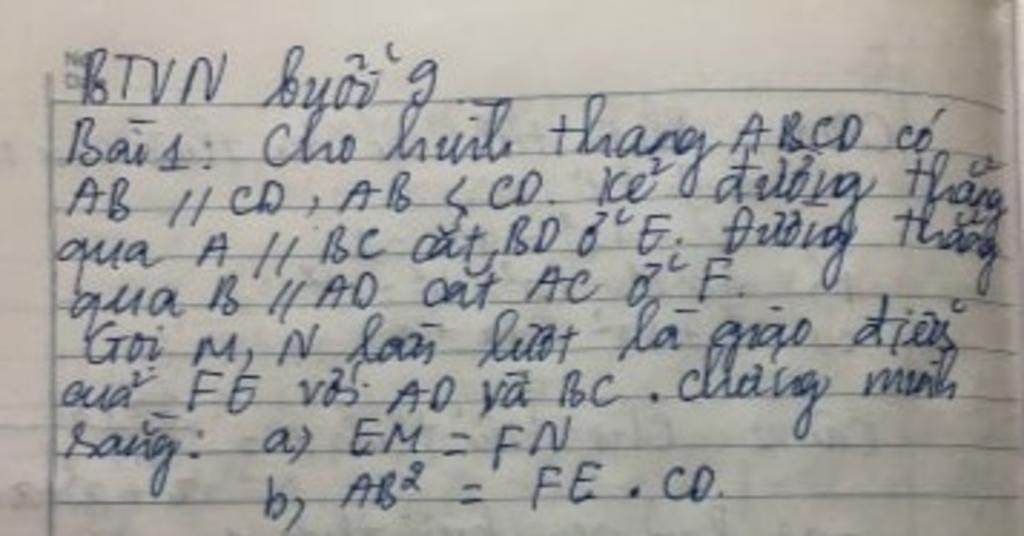 BTVN buổi 9
Bài 1: Cho hình thang ABCD có
AB // CD, AB < CD. Kẻ đường thẳng
qua A // BC cắt BD ở E. Đường thẳng
qua B // AD cắt AC ở F.
Gọi M, N lần lượt là giao điểm
của FE với AD và BC. Chứng minh
rằng: a) EM = FN
b) AB² = FE . CD.